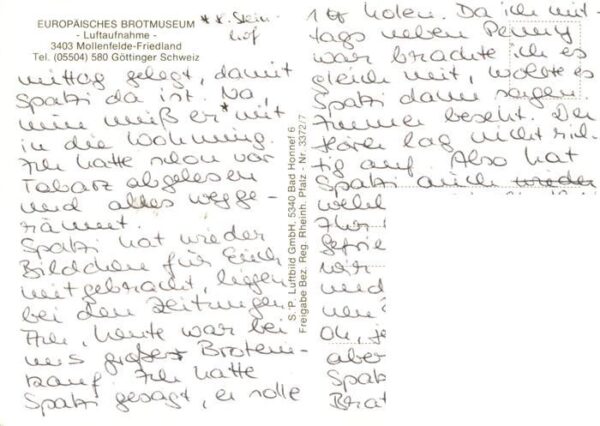 EUROPÄISCHES BROTMUSEUM
- Luftaufnahme -
3403 Mollenfelde-Friedland
Tel. (05504) 580 Göttinger Schweiz
* z. Stein-
hof
mittag gelegt, damit
Spatzi da ist. Na,
nun muß er * mit
in die Wohnung.
Ich hatte schon vor
Tabarz abgelesen
und alles wegge-
räumt.
Spatzi hat wieder
Bildchen für Euch
mitgebracht, liegen
bei den Zeitungen
Ach, heute war bei
uns großer Brotein-
kauf Ich hatte
Spatzi gesagt, er solle
S. P. Luftbild GmbH, 5340 Bad Honnef 6
Freigabe Bez. Reg. Rheinh. Pfalz - Nr. 3372/7
holen. Da ich mit-
tags neben Penny
war brachte ich es
gleich mit, wollte es
Spatzi dann sagen
Zimmer besetzt. Der
Hörer lag nicht rich-
tig auf. Also hat
Spatzi auch wieder
welch
Ihr
gefrie
wir
und
nen
Oh, je
aber
Spatz
Brat